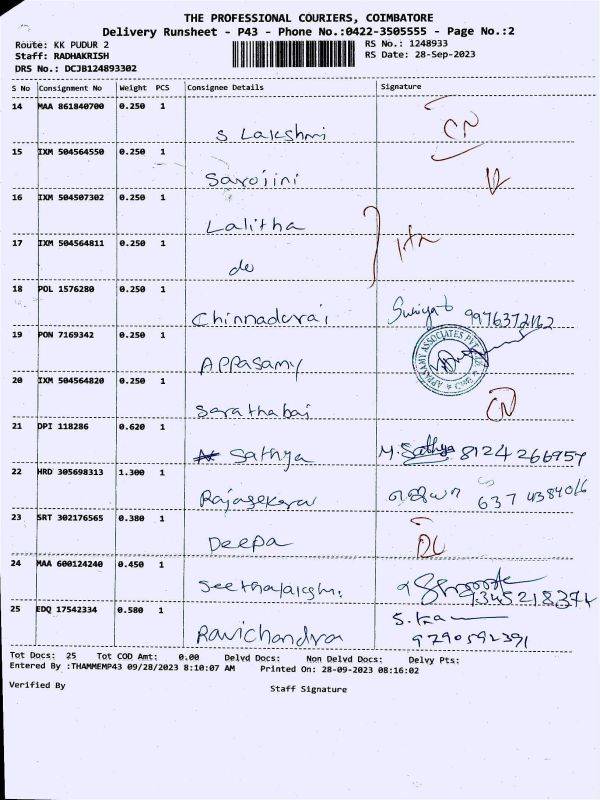 THE PROFESSIONAL COURIERS, COIMBATORE
Delivery Runsheet - P43 - Phone No.:0422-3505555 - Page No.:2
Route: KK PUDUR 2 RS No.: 1248933
Staff: RADHAKRISH RS Date: 28-Sep-2023
DRS No.: DCJB124893302
S No Consignment No Weight PCS Consignee Details Signature
14 MAA 861840700 0.250 1
S Lakshmi CN
15 IXM 504564550 0.250 1
Sarojini
16 IXM 504507302 0.250 1
Lalitha
17 IXM 504564811 0.250 1
do
18 POL 1576280 0.250 1
Chinnadurai 9976372162
19 PON 7169342 0.250 1
APPASAMY APPASAMY ASSOCIATES PVT
20 IXM 504564820 0.250 1
Sarathabai CN
21 DPI 118286 0.620 1
Sathya M. Sathya 8124266757
22 HRD 305698313 1.300 1
Rajasekara 637 4384066
23 SRT 302176565 0.380 1
Deepa DL
24 MAA 600124240 0.450 1
Seethalakshmi 9345218374
25 EDQ 17542334 0.580 1
Ravichandra 9790592391
Tot Docs: 25 Tot COD Amt: 0.00 Delvd Docs: Non Delvd Docs: Delvy Pts:
Entered By :THAMMEMP43 09/28/2023 8:10:07 AM Printed On: 28-09-2023 08:16:02
Verified By Staff Signature